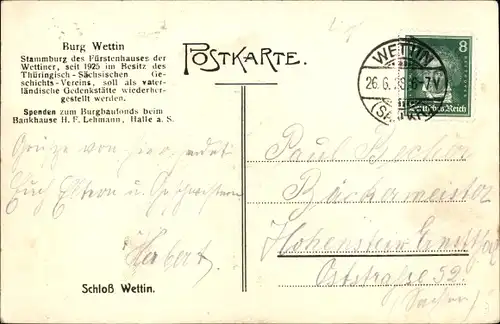 Burg Wettin
Stammburg des Fürstenhauses der
Wettiner, seit 1925 im Besitz des
Thüringisch-Sächsischen Ge-
schichts-Vereins, soll als vater-
ländische Gedenkstätte wiederher-
gestellt werden.
Spenden zum Burgbaufonds beim
Bankhause H. F. Lehmann, Halle a. S.
POSTKARTE.
8
WETTIN
26. 6. 28. 6-7V
Deutsches Reich
Grüße von hier sendet
Euch Eltern u. Geschwistern
Herbert.
Schloß Wettin.
Paul Becker
Bäckermeister
Hohenstein Ernstthal
Oststraße 52
(Sachsen)